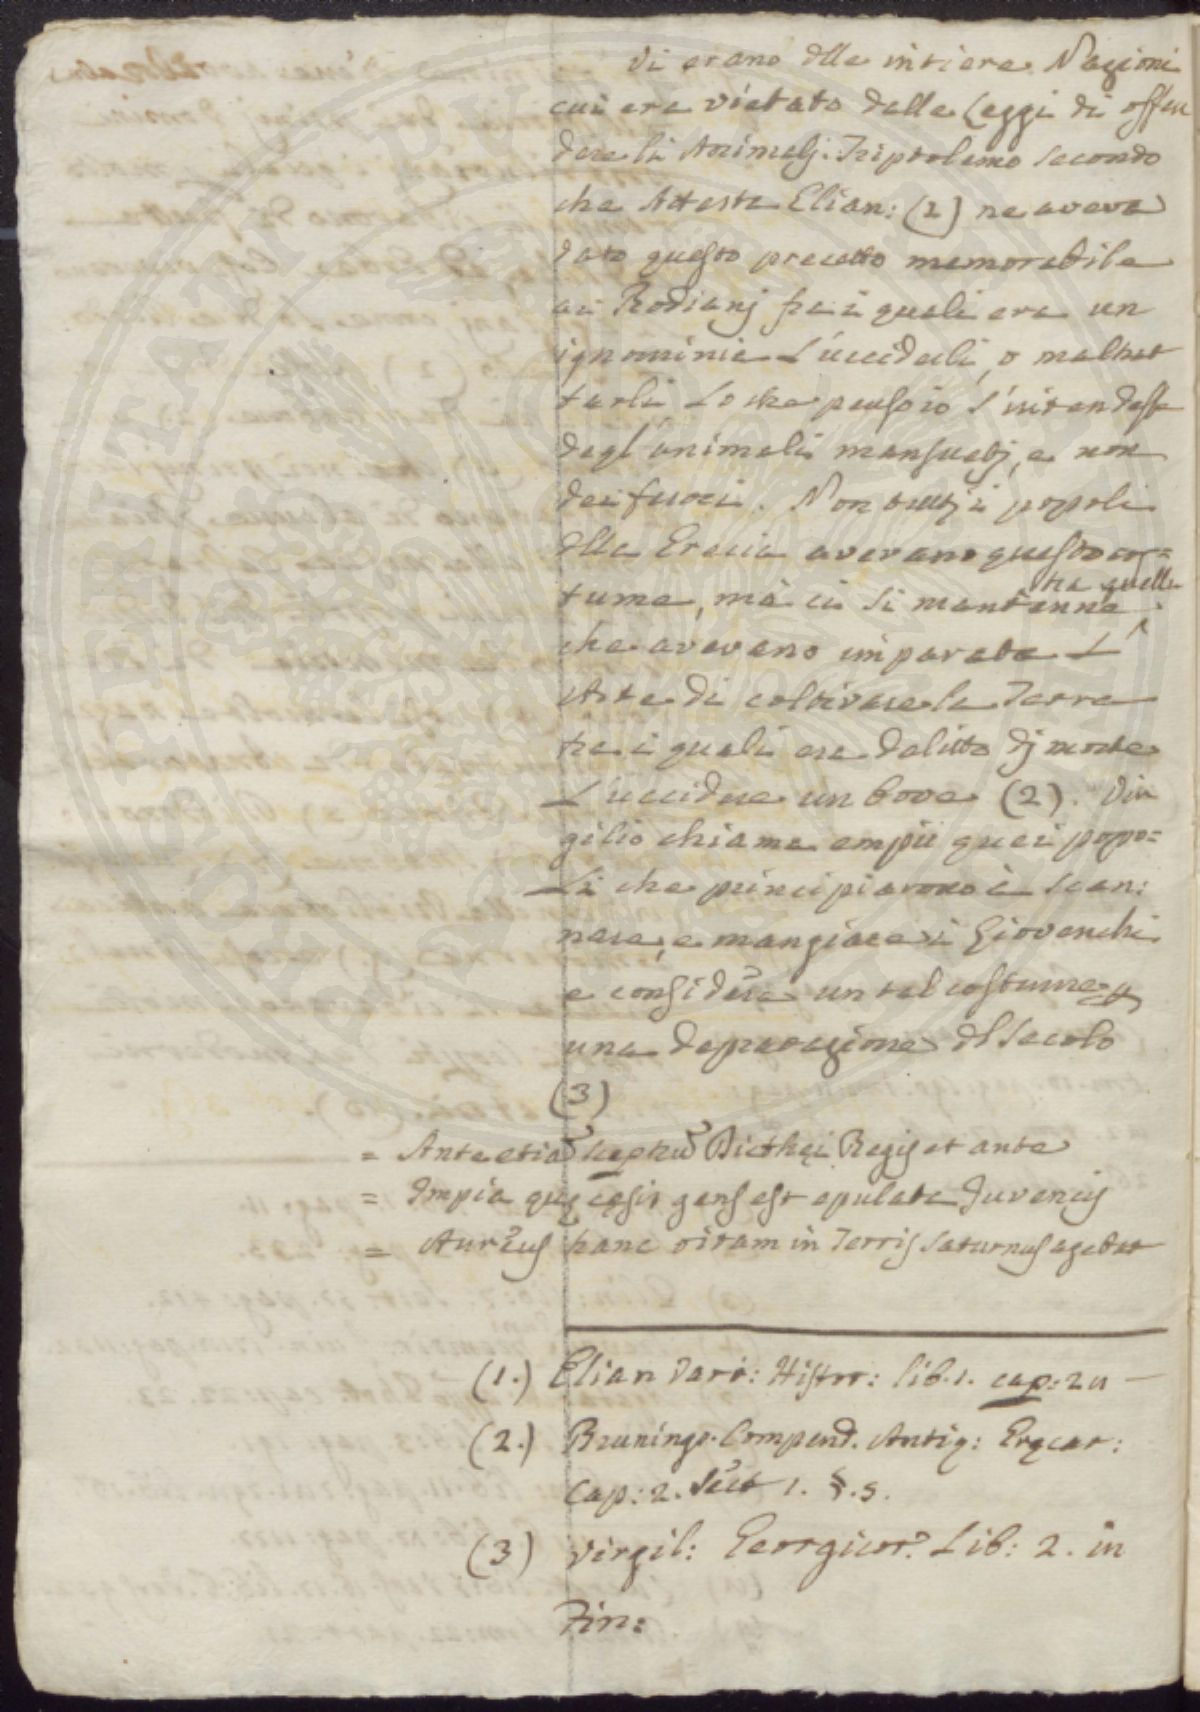 Vi erano dlle intiere Nazioni
cui era vietato dalle Leggi di offen
dere li Animalj. Triptolemo secondo
che Attesta Elian: (2) ne aveva
dato questo precetto memorabile
ai Rodianj fra i quali era un
ignominia L'ucciderli, o maltrat
tarli Lo che penso io s'intendesse
degl'animali mansuetj, e non
dei feroci. Non tuttj i popoli
dlla Grecia avevano questo cos=
tume, mà ei si mantenne tra quelli
che avevano imparato L'
Arte di coltivare la Terra
tra i quali era delitto dj morte
L'uccidere un bove (2). Vir
gilio chiama empii quei popo=
Li che principiarono à scan:
nare, e mangiare i Giovenchi
e considera un tal costume p
una depravazione dl secolo
(3)
= Ante etiā sceptrū Dicthęi Regis et ante
= Impia quą cęsis gens est epulata Juvencis
= Aureus hanc vitam in Terris Saturnus agebat
(1.) Elian Vari: Histor: lib. 1. cap:
(2.) Brunings. Compend. Antiq: Gręcar:
Cap: 2. Sect 1. §. 5.
(3) Virgil: Georgicor: Lib: 2. in
Fin:
PROSPERITATI PVBLICAE